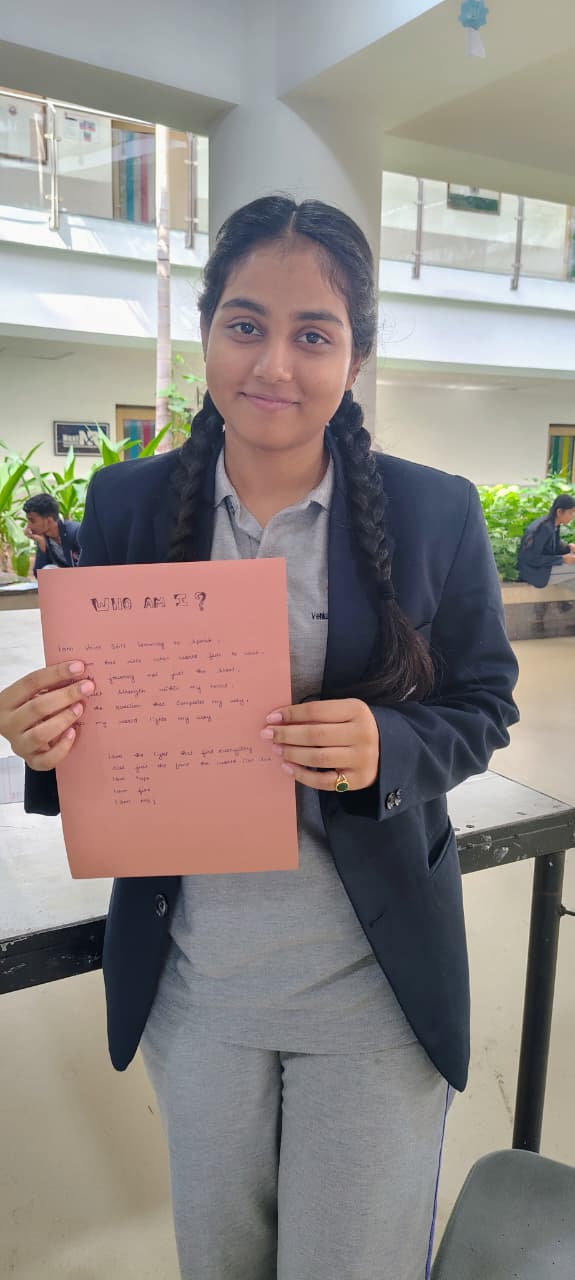 WHO AM I ?
I am voice still learning to speak,
that walk when world fade to
journey not just the start,
strength within my heart.
the question that completes my way,
my world lights my way
I am the light that find everything
not just the the world can see
I am hope
I am fire
I am me,